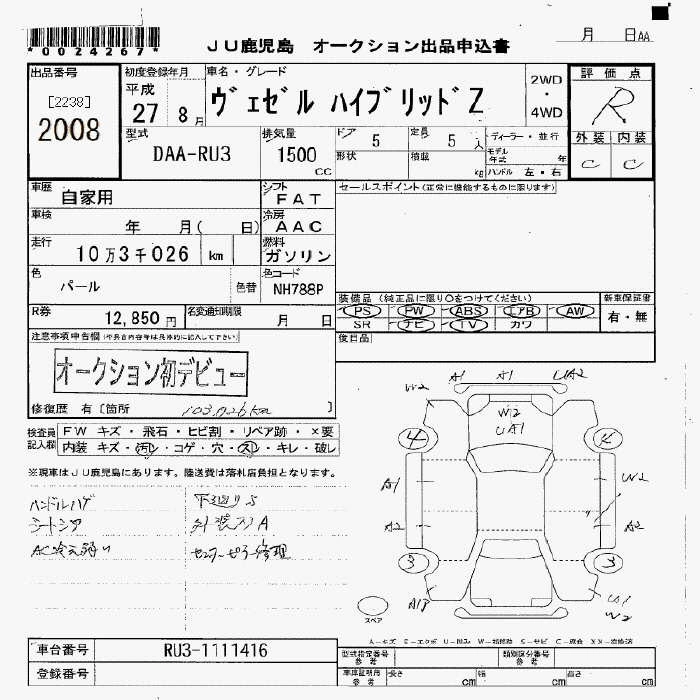 *0024267*
JU鹿児島 オークション出品申込書
月 日AA
出品番号
[2238]
2008
初度登録年月
平成
27 8月
車名・グレード
ヴェゼル ハイブリッドZ
2WD
・
4WD
評価点
R
外装 内装
C C
型式
DAA-RU3
排気量
1500
CC
ドア 5
定員 5 人
形状
積載 kg
ディーラー・並行
モデル年式 年
ハンドル 左・右
車歴
自家用
シフト
FAT
セールスポイント(正常に機能するものに限ります)
車検
年 月( 日)
冷房
AAC
走行
10万3千026 km
燃料
ガソリン
色
パール
色替
色コード
NH788P
装備品(純正品に限り○をつけてください)
PS PW ABS エアB AW
SR ナビ TV カワ
新車保証書
有・無
R券
12,850円
名変通知期限
月 日
後日品
注意事項申告欄
オークション初デビュー
修復歴 有〔箇所 103,026km 〕
検査員記入欄
FW キズ・飛石・ヒビ割・リペア跡・×要
内装 キズ・汚レ・コゲ・穴・スレ・キレ・破レ
※現車はJU鹿児島にあります。陸送費は落札店負担となります。
ハンドルハゲ
下廻りS
外装刀A
AC冷え弱い
センターピラー修理
W2 A1 A1 UA2
W2
UA1
4 4
A1 W2
A2 A2
3 3
W2
スペア
車台番号
RU3-1111416
登録番号
型式指定番号
参考
類別区分番号
参考
車庫証明用
参考
長さ cm
幅 cm
高さ cm